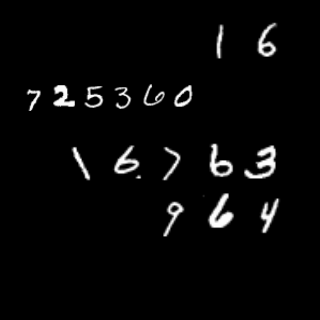 16
725360
16763
964